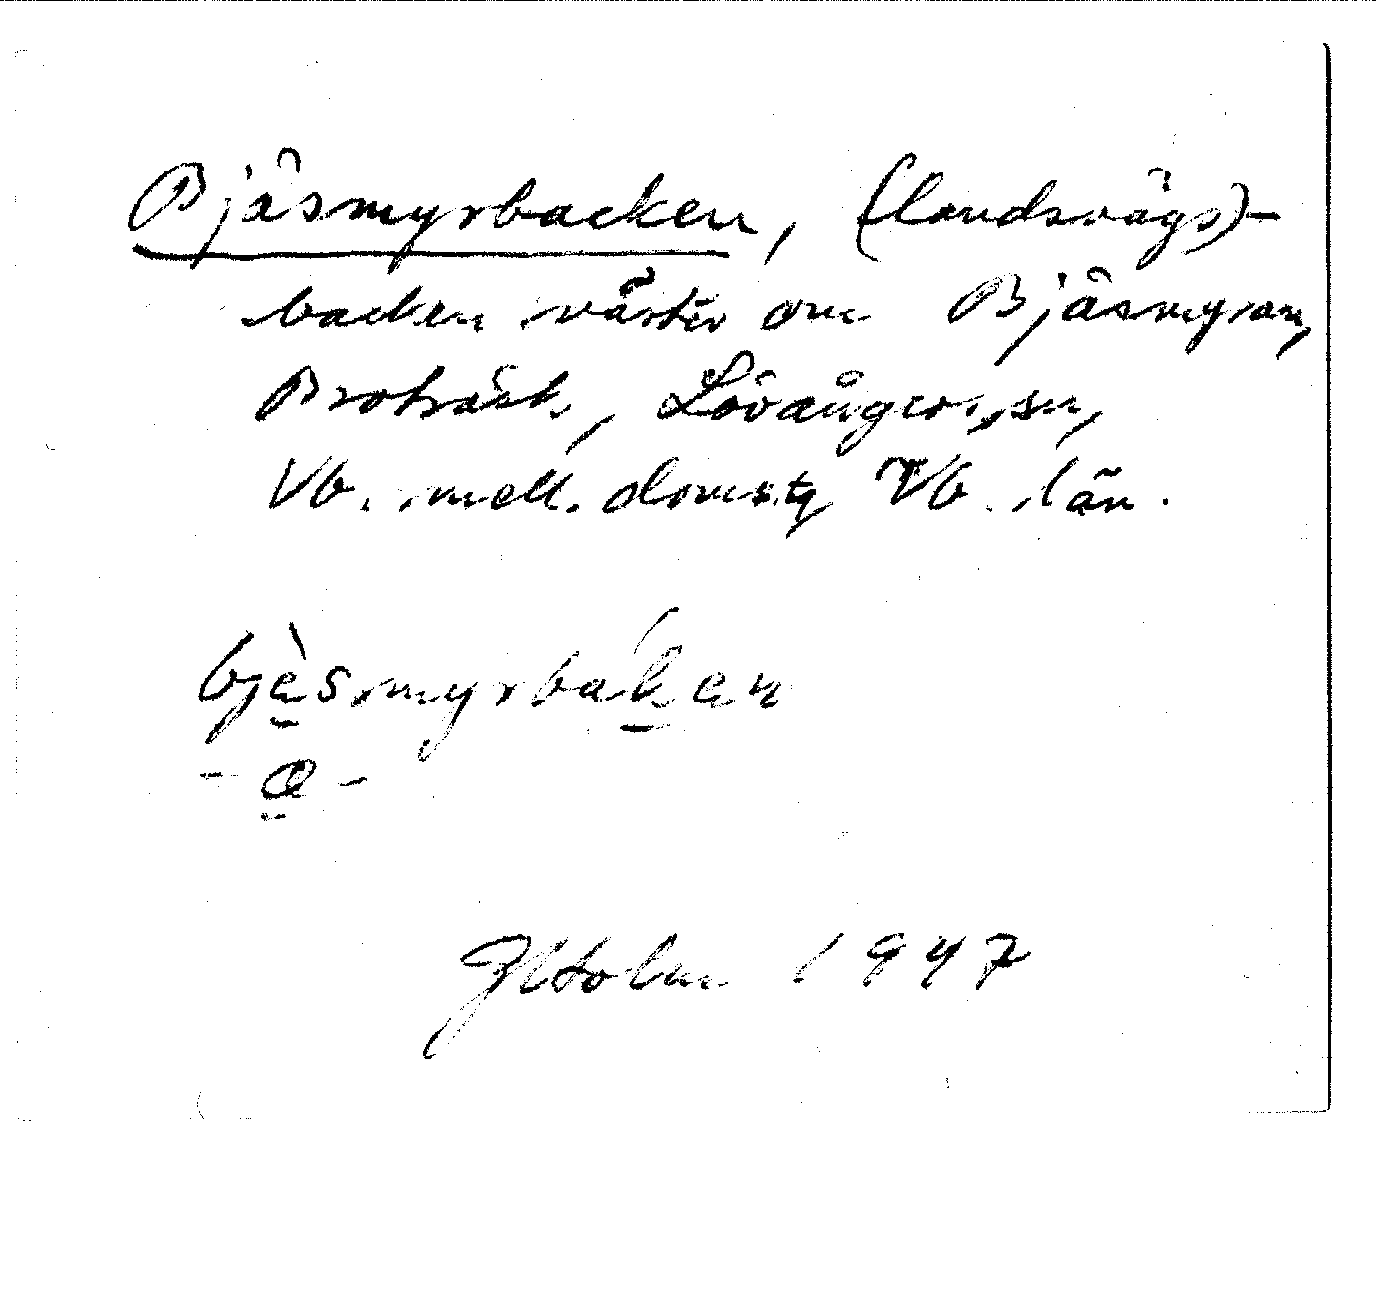 Bjäsmyrbacken, (landsvägs)-
backen väster om Bjäsmyran,
Broträsk, Lövångers sn,
Vb. mell. doms.tg Vb. län.
bjèsmyrbáken
- a -
Holm 1947